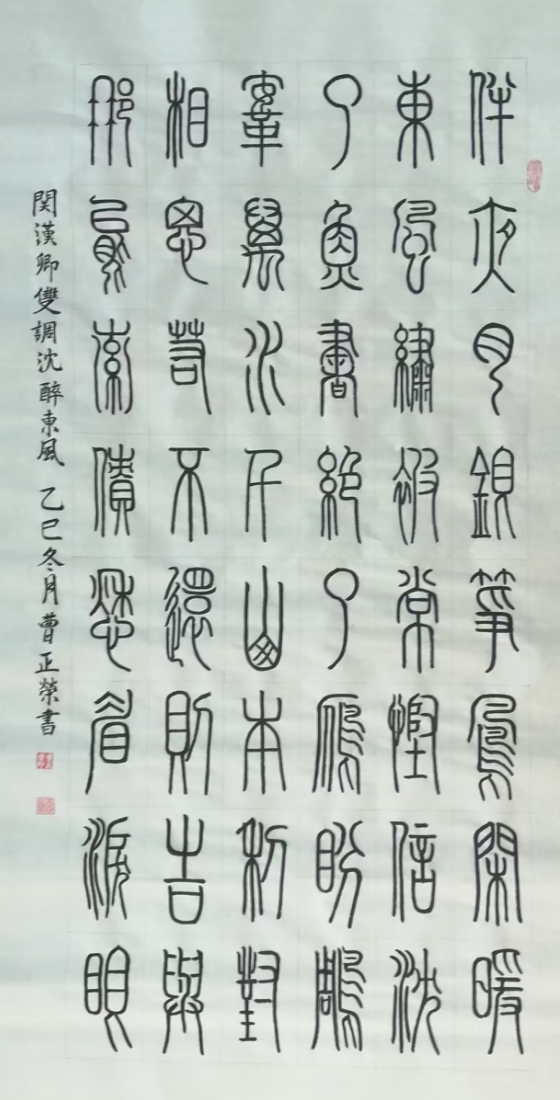 伴夜月銀箏鳳閑暖
東風繡被常慳信沈
了魚書絕了鴈盼鵰
鞍萬水千山本利對
相思若不還則告與
那能索債愁眉淚眼
関漢卿雙調沈醉東風 乙巳冬月曹正榮書